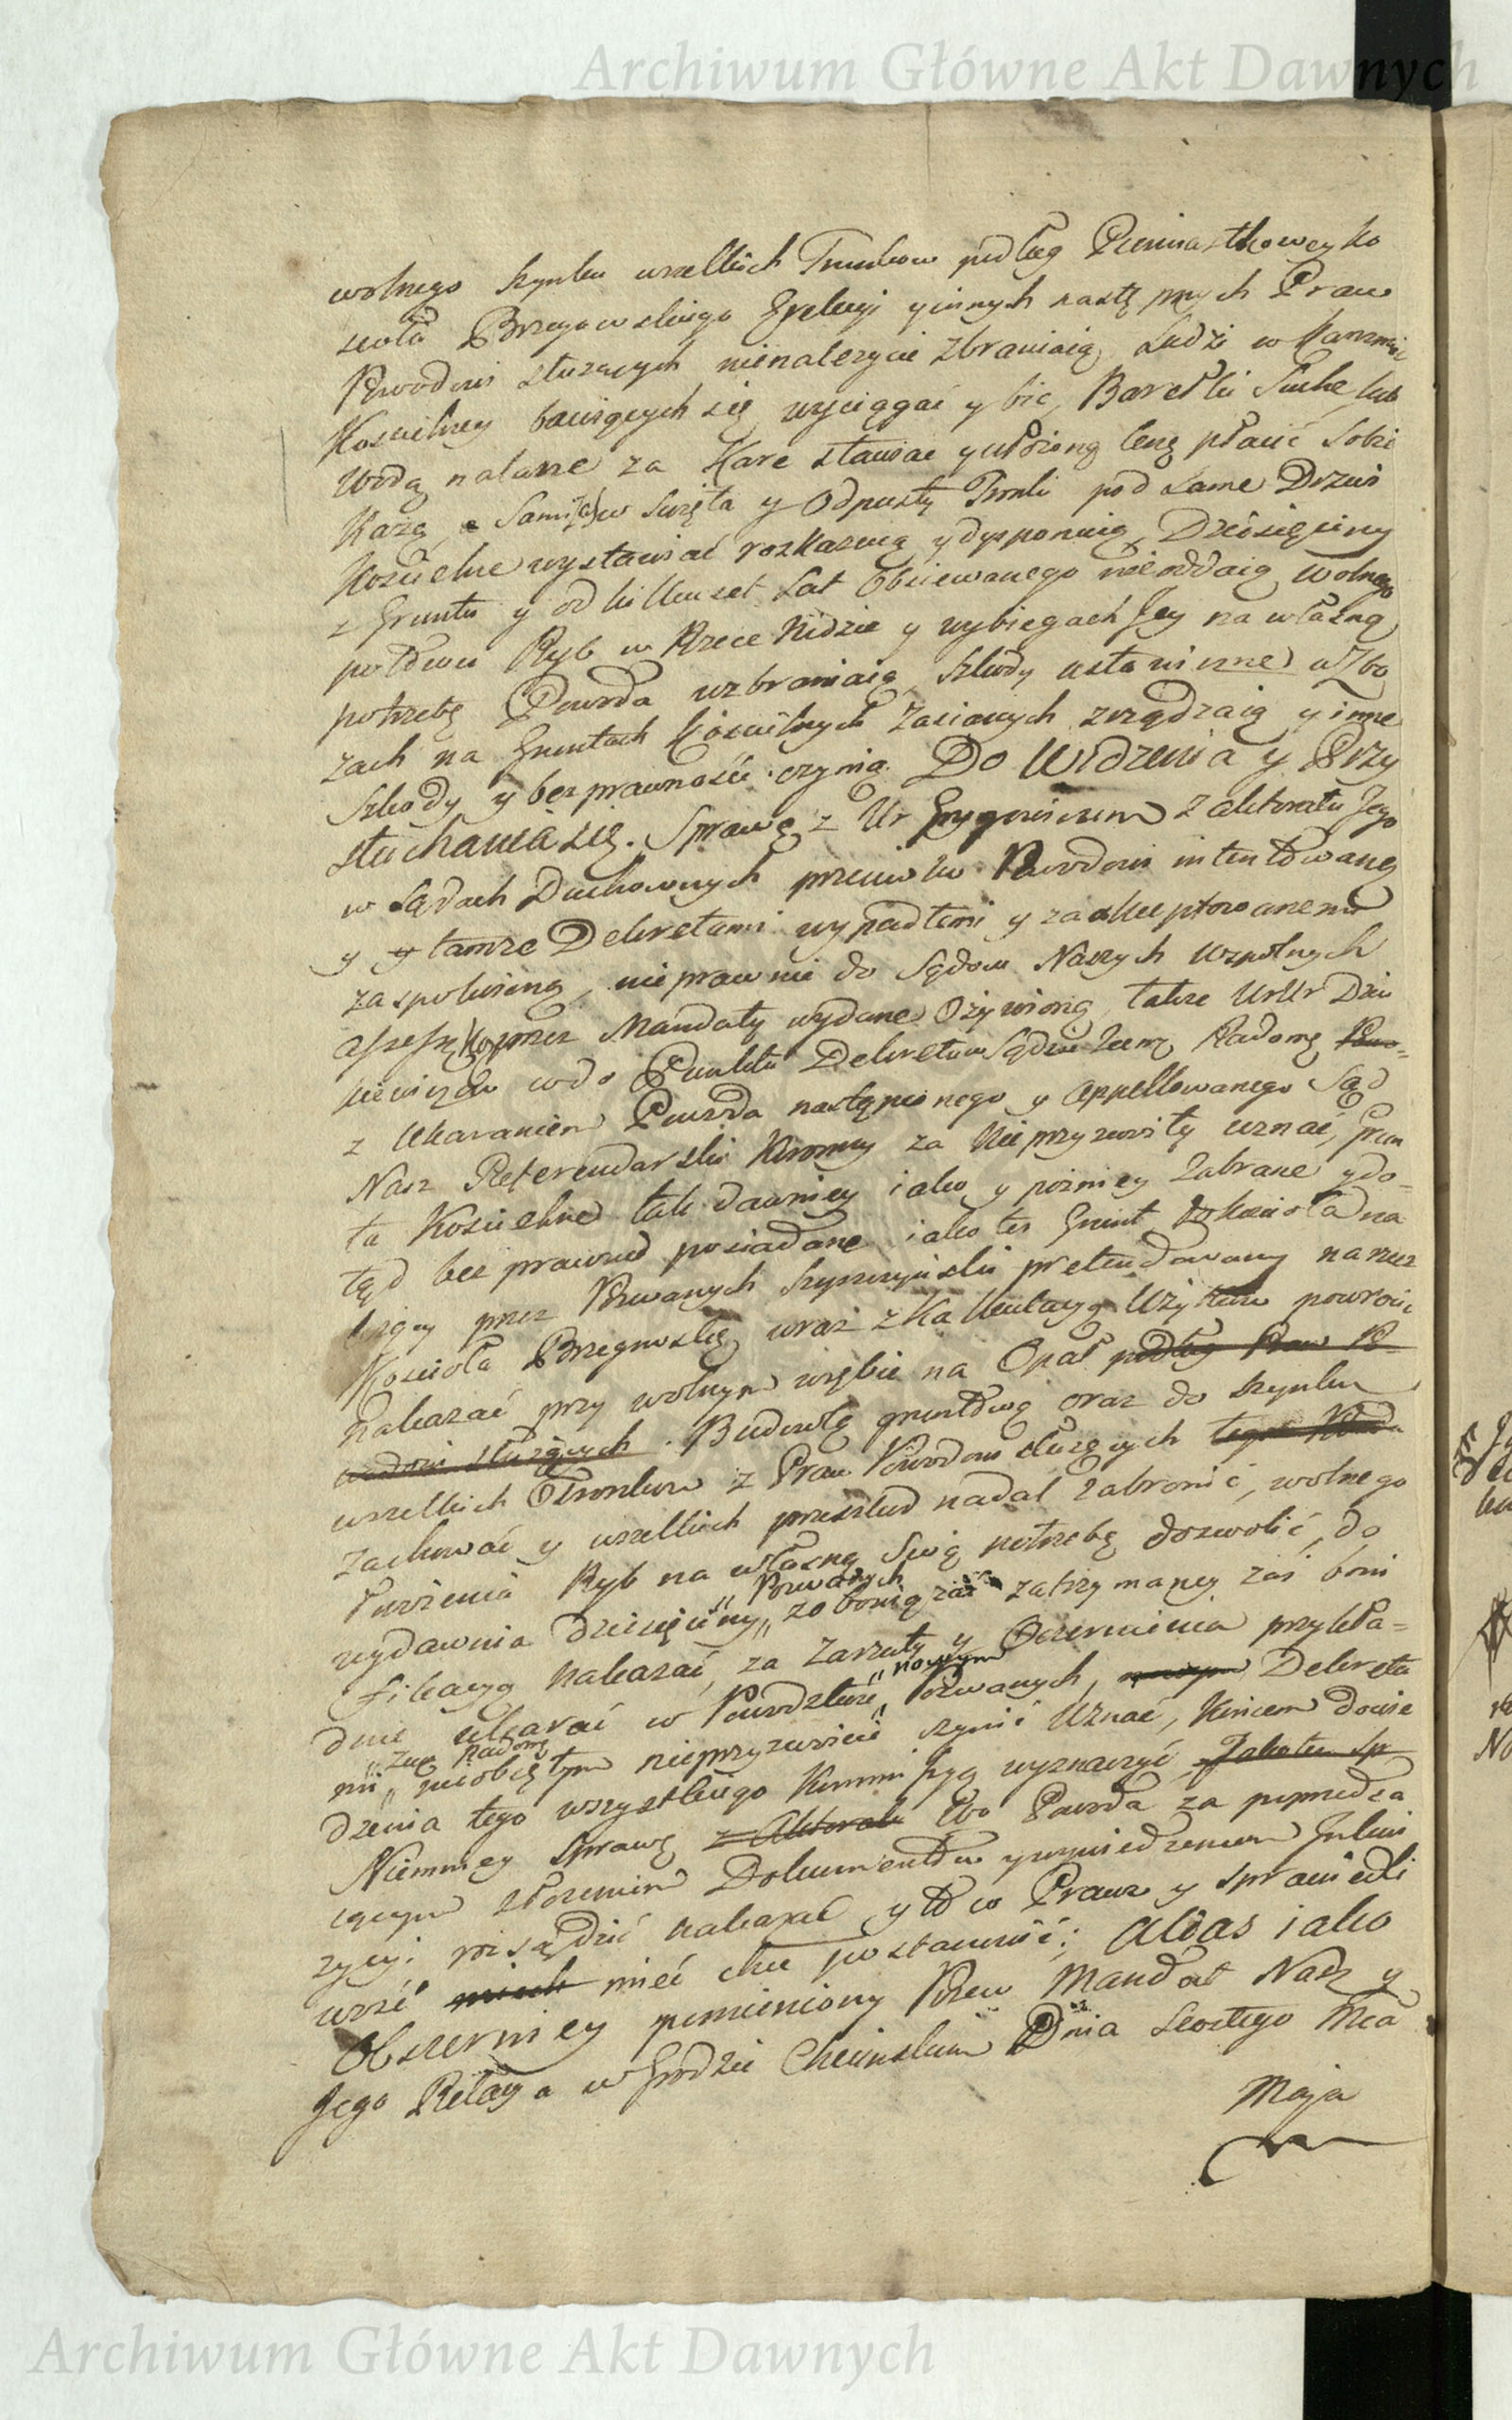 Archiwum Główne Akt Dawnych
wolnego Szynku wszelkich Trunkow podług Pierwiastkowey Ko
scioła Brzegowskiego Erekcyi y innych następnych Praw
Powodowi służących nienalezycie zbraniaią Ludzi w Karczmie
Koscielney bawiących się wyciągać y bić, Baryłki Suche lub
Wodą nalane za Kare stawiać y ułożoną cenę płacić Sobie
Każą, a Sami w Swięta y Odpusty Trunki pod same Drzwi
Koscielne wystawiać rozkazuią y dysponuią, Dziesięciny
z Gruntu y od kilkuset Lat Obsiewanego nieoddaią, wolnego
połowu Ryb w Rzece Nidzie y wybiegach Jey na własną
potrzebę Powoda wzbraniaią, Szkody ustawiczne w Zbo
zach na Gruntach Koscielnych zasianych zrządzaią y inne
Szkody y bezprawności czynią. Do Widzenia y Przy
słuchania się. Sprawę z Ur z aktoratu Jego
w Sądach Duchownych przeciwko Powodowi intentowaną
y tamże Dekretami wypadłemi y zaakceptowanemi
zaspokoioną, nieprawnie do Sądow Naszych wspolnych
przez Mandaty wydane Ożywioną, także UrUr Dzie
wdo Punktu Dekretow Sądu Ziem. Radom.
z Ukaraniem Powoda nastąpionego y appellowanego Sąd
Nasz Referendarski Koronny za Nieprzyzwoity uznać, Grun
ta Koscielne tak dawniey iako y pozniey Zabrane y do=
tąd bezprawnie posiadane iako też Grunt do Kościoła na
leżący przez Pozwanych pretendowany na rzecz
Kościoła Brzegowskie wraz z Kalkulacyą Użytkow powrocić
Nakazać przy wolnym wrębie na Opał podług Praw Po=
wodowi służących. Budowlę gruntową oraz do Szynku
wszelkich Trunkow z Praw Powodowi służących
zachować y wszelkich przeszkod nadal Zabronić, wolnego
Łowienia Ryb na własną Swą potrzebę dozwolić, do
" Pozwanych
wydawania dziesięciny " zobowiązać zatrzymaney zaś boni
fikacyą Nakazać, za zarzuty y Oczernienia przykła=
" nowym
dnie ukarać w Powodztwie " Pozwanych, Dekreta
" Zie Radom
mi " nieobiętym nieprzyzwoicie czynić Uznać, Koncem dowie
dzenia tego wszystkiego Kommissyą wyznaczyć,
Niemniey Sprawę z Aktoratu Powoda za poprzedza
iącym złożeniem Dokumentow y uprzedzeniem Inkwi
zycyi rozsądzić nakazać y to co Prawo y sprawiedli
wość mieć chce postanowić; Alias iako
Obszerniey pomieniony Pozew Mandat Nasz y
Jego Relacya w Grodzie Chęcinskim Dnia Szostego Mca
Maja
Archiwum Główne Akt Dawnych